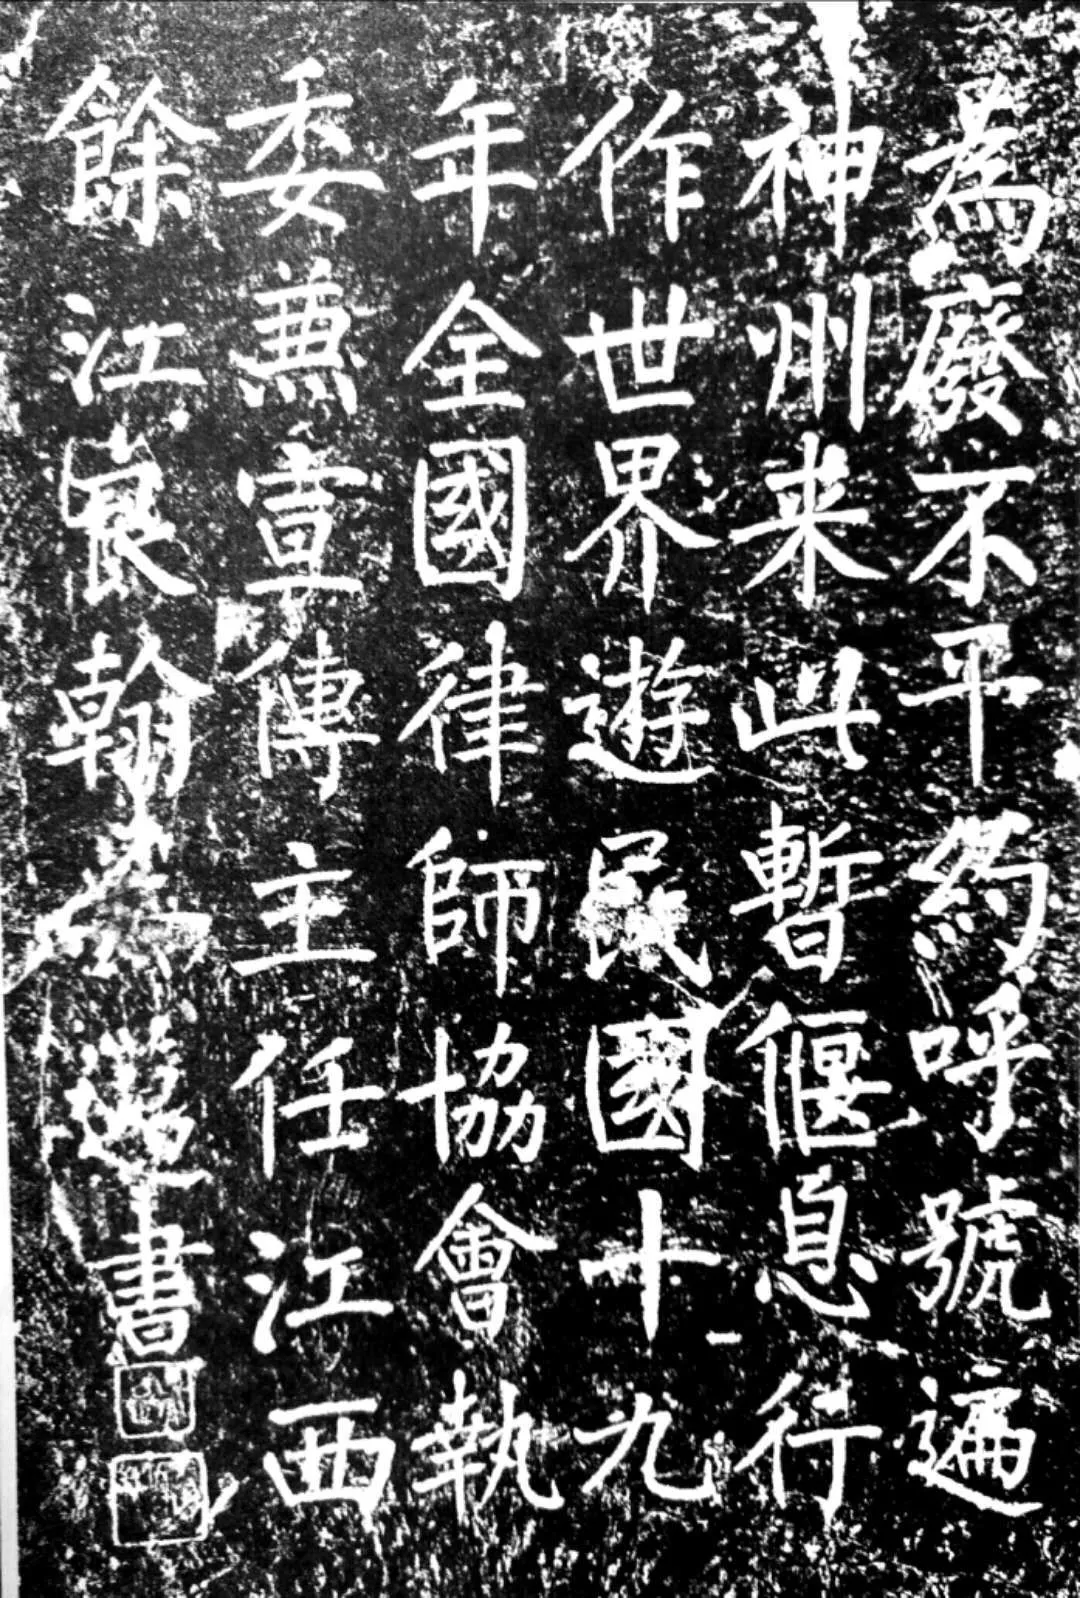 為廢不平約呼號遍
神州来此暫偃息行
作世界遊民國十九
年全國律師協會執
委兼宣傳主任江西
餘江袁翰
書